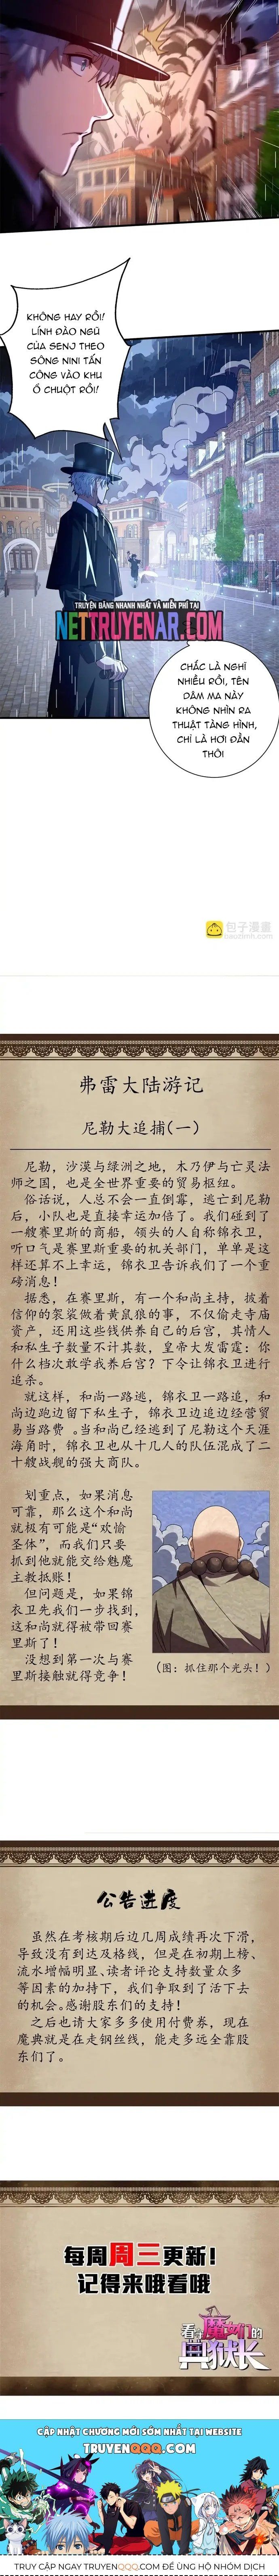 KHÔNG HAY RỒI!
LÍNH ĐÀO NGŨ
CỦA SENJ THEO
SÔNG NINI TẤN
CÔNG VÀO KHU
Ổ CHUỘT RỒI!
TRUYỆN ĐĂNG NHANH NHẤT VÀ MIỄN PHÍ TẠI
NETTRUYENAR.COM
CHẮC LÀ NGHĨ
NHIỀU RỒI, TÊN
DÂM MA NÀY
KHÔNG NHÌN RA
THUẬT TÀNG HÌNH,
CHỈ LÀ HƠI ĐẦN
THÔI
包子漫畫
baozimh.com
弗雷大陆游记
尼勒大追捕(一)
尼勒，沙漠与绿洲之地，木乃伊与亡灵法
师之国，也是全世界重要的贸易枢纽。
俗话说，人总不会一直倒霉，逃亡到尼勒
后，小队也是直接幸运加倍了。我们碰到了
一艘赛里斯的商船，领头的人自称锦衣卫，
听口气是赛里斯重要的机关部门，单单是这
样还算不上幸运，锦衣卫告诉我们了一个重
磅消息！
据悉，在赛里斯，有一个和尚主持，披着
信仰的袈裟做着黄鼠狼的事，不仅偷走寺庙
资产，还用这些钱供养自己的后宫，其情人
和私生子数量不计其数，皇帝大发雷霆：你
什么档次敢学我养后宫？下令让锦衣卫进行
追杀。
就这样，和尚一路逃，锦衣卫一路追，和
尚边跑边留下私生子，锦衣卫边追边经营贸
易当路费 。当和尚已经逃到了尼勒这个天涯
海角时，锦衣卫也从十几人的队伍混成了二
十艘战舰的强大商队。
划重点，如果消息
可靠，那么这个和尚
就极有可能是“欢愉
圣体”，而我们只要
抓到他就能交给魅魔
主教抵账！
但问题是，如果锦
衣卫先我们一步找到，
这和尚就得被带回赛
里斯了！
没想到第一次与赛
里斯接触就得竞争！
（图：抓住那个光头！）
公告进度
虽然在考核期后边几周成绩再次下滑，
导致没有到达及格线，但是在初期上榜、
流水增幅明显、读者评论支持数量众多
等因素的加持下，我们争取到了活下去
的机会。感谢股东们的支持！
之后也请大家多多使用付费券，现在
魔典就是在走钢丝线，能走多远全靠股
东们了。
每周周三更新！
记得来哦看哦
看着魔女们的
典狱长
CẬP NHẬT CHƯƠNG MỚI SỚM NHẤT TẠI WEBSITE
TRUYENQQQ.COM
TRUY CẬP NGAY TRUYENQQQ.COM ĐỂ ỦNG HỘ NHÓM DỊCH